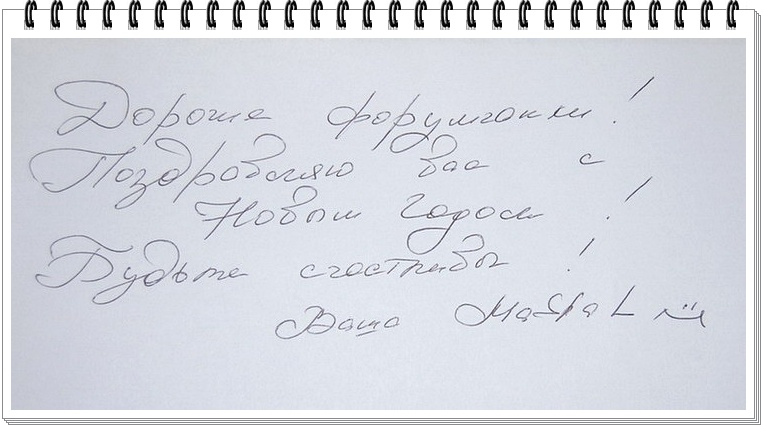 Дорогие форумчанки!
Поздравляю вас с
Новым годом!
Будьте счастливы!
Ваша